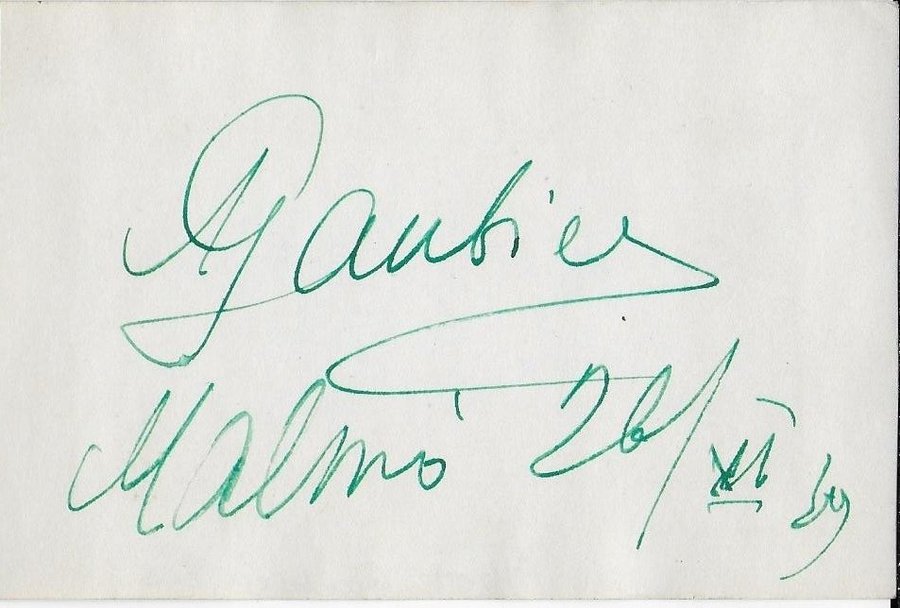 Gaubier
Malmö 26/XI 59